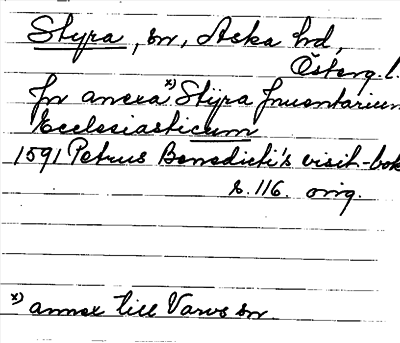 Styra, sn, Aska hd,
Österg. l.
In anexa x) Stÿra Inuentarium
Ecclesiasticum
1591 Petrus Benedicti's visit-bok
s. 116. orig.
x) annex till Varvs sn